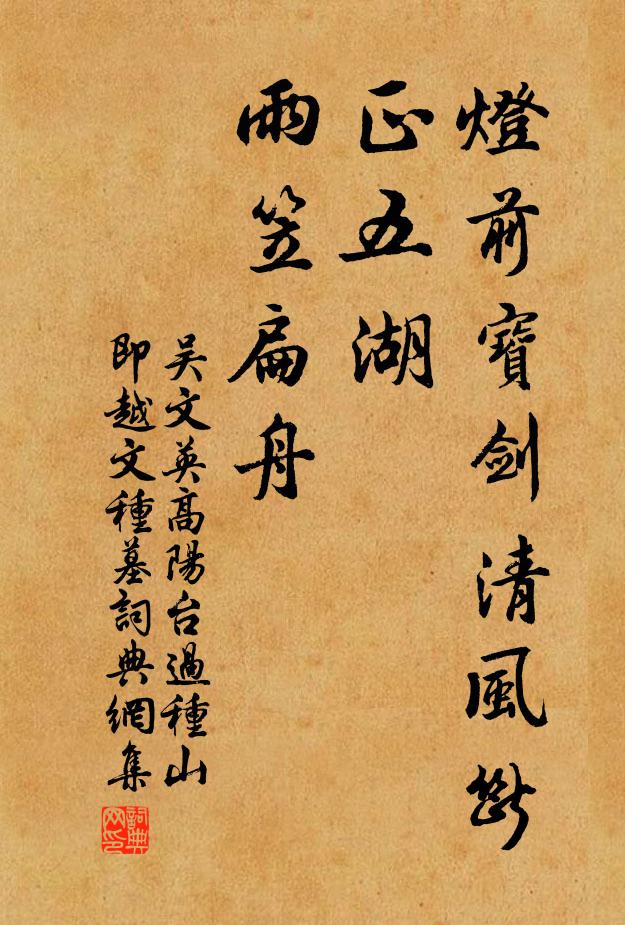 燈前寶劍清風斷
正五湖
雨笠扁舟
吴文英高陽台過種山
即越文種墓詞典網集
詞典网印